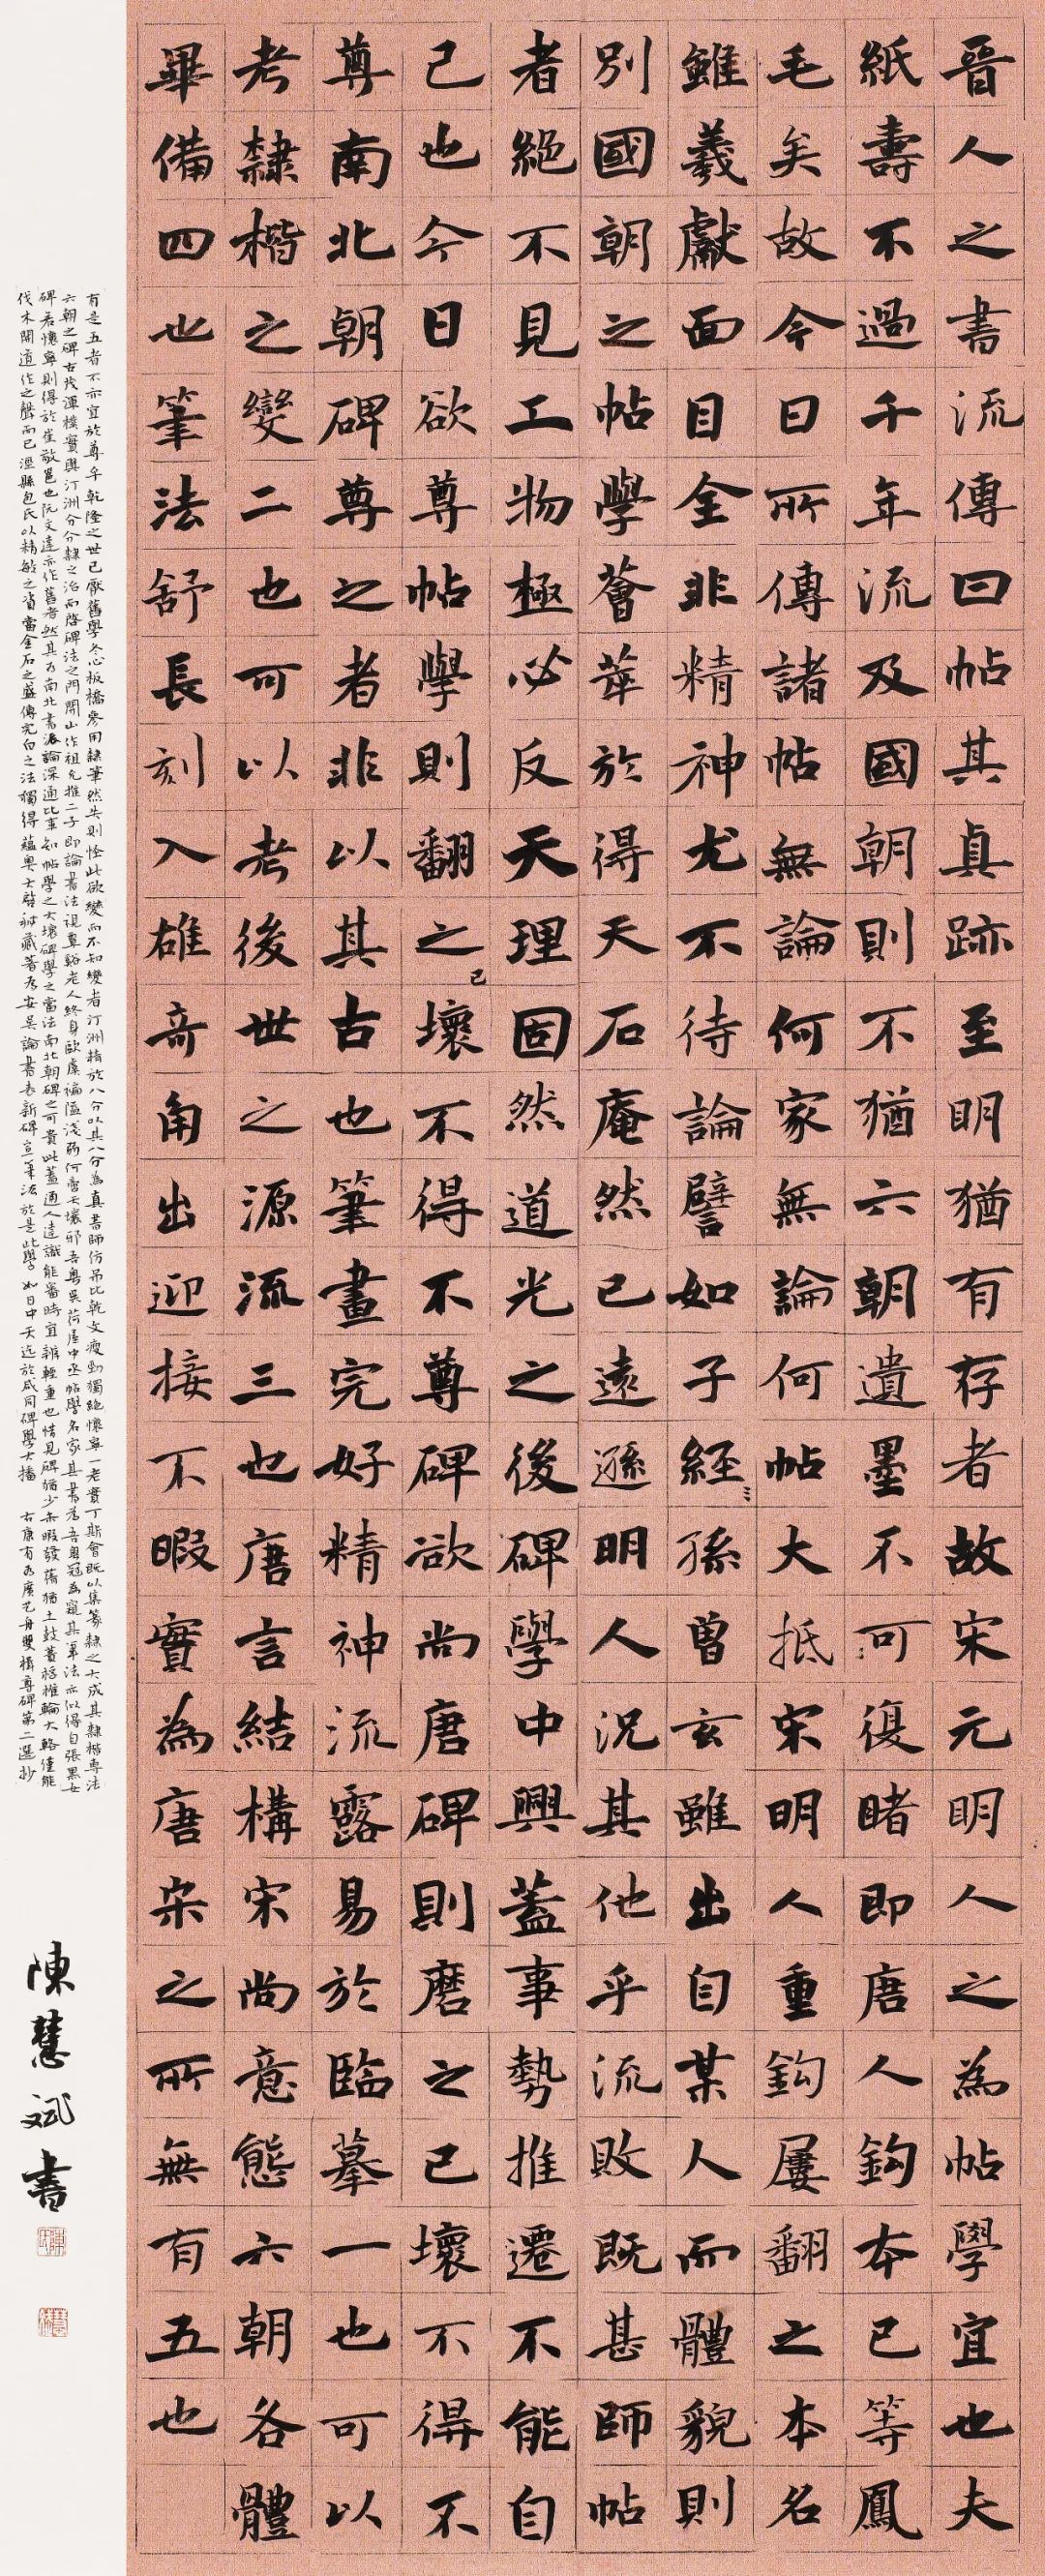 晉人之書流傳曰帖其真跡至明猶有存者故宋元明人之為帖學宜也夫
紙壽不過千年流及國朝則不猶六朝遺墨不可復睹即唐人鈎本已等鳳
毛矣故今日所傳諸帖無論何家無論何帖大抵宋明人重鈎屢翻之本名
雖羲獻面目全非精神尤不待論譬如子經孫曾玄雖出自某人而體貌則
別國朝之帖學薈萃於得天石庵然已遠遜明人況其他乎流敗既甚師帖
者絕不見工物極必反天理固然道光之後碑學中興蓋事勢推遷不能自
己也今日欲尊帖學則翻之已壞不得不尊碑欲尚唐碑則磨之已壞不得不
尊南北朝碑尊之者非以其古也筆畫完好精神流露易於臨摹一也可以
考隸楷之變二也可以考後世之源流三也唐言結構宋尚意態六朝各體
畢備四也筆法舒長刻入雄奇角出迎接不暇實為唐宋之所無有五也
有是五者不亦宜於尊乎乾隆之世已厭舊學冬心板橋參用隸筆然失則怪此欲變而不知變者汀洲精於八分以其八分為真書師仿吊比乾文瘦勁獨絕懷寧一老實丁斯會既以集篆隸之大成其隸楷專法
六朝之碑古茂渾樸實與汀洲分分隸之治而啓碑法之門開山作祖允推二子即論書法視覃谿老人終身歐虞褊隘淺弱何啻天壤邪吾粵吳荷屋中丞帖學名家其書為吾粵冠為窺其筆法亦似得自張黑女
碑若懷寧則得於崔敬邕也阮文達亦作舊者然其為南北書派論深通比事知帖學之大壞碑學之當法南北朝碑之可貴此蓋通人達識能審時宜辨輕重也惜見碑猶少未暇發蒨猶土鼓蕢桴椎輪大輅僅能
伐木開道作之聲而已涇縣包氏以精敏之資當金石之盛傳完白之法獨得蘊奧大啓秘藏著為安吳論書表新碑宣筆法於是此學如日中天迄於咸同碑學大播 右康有為廣艺舟雙楫尊碑第二選抄
陳慧斌書